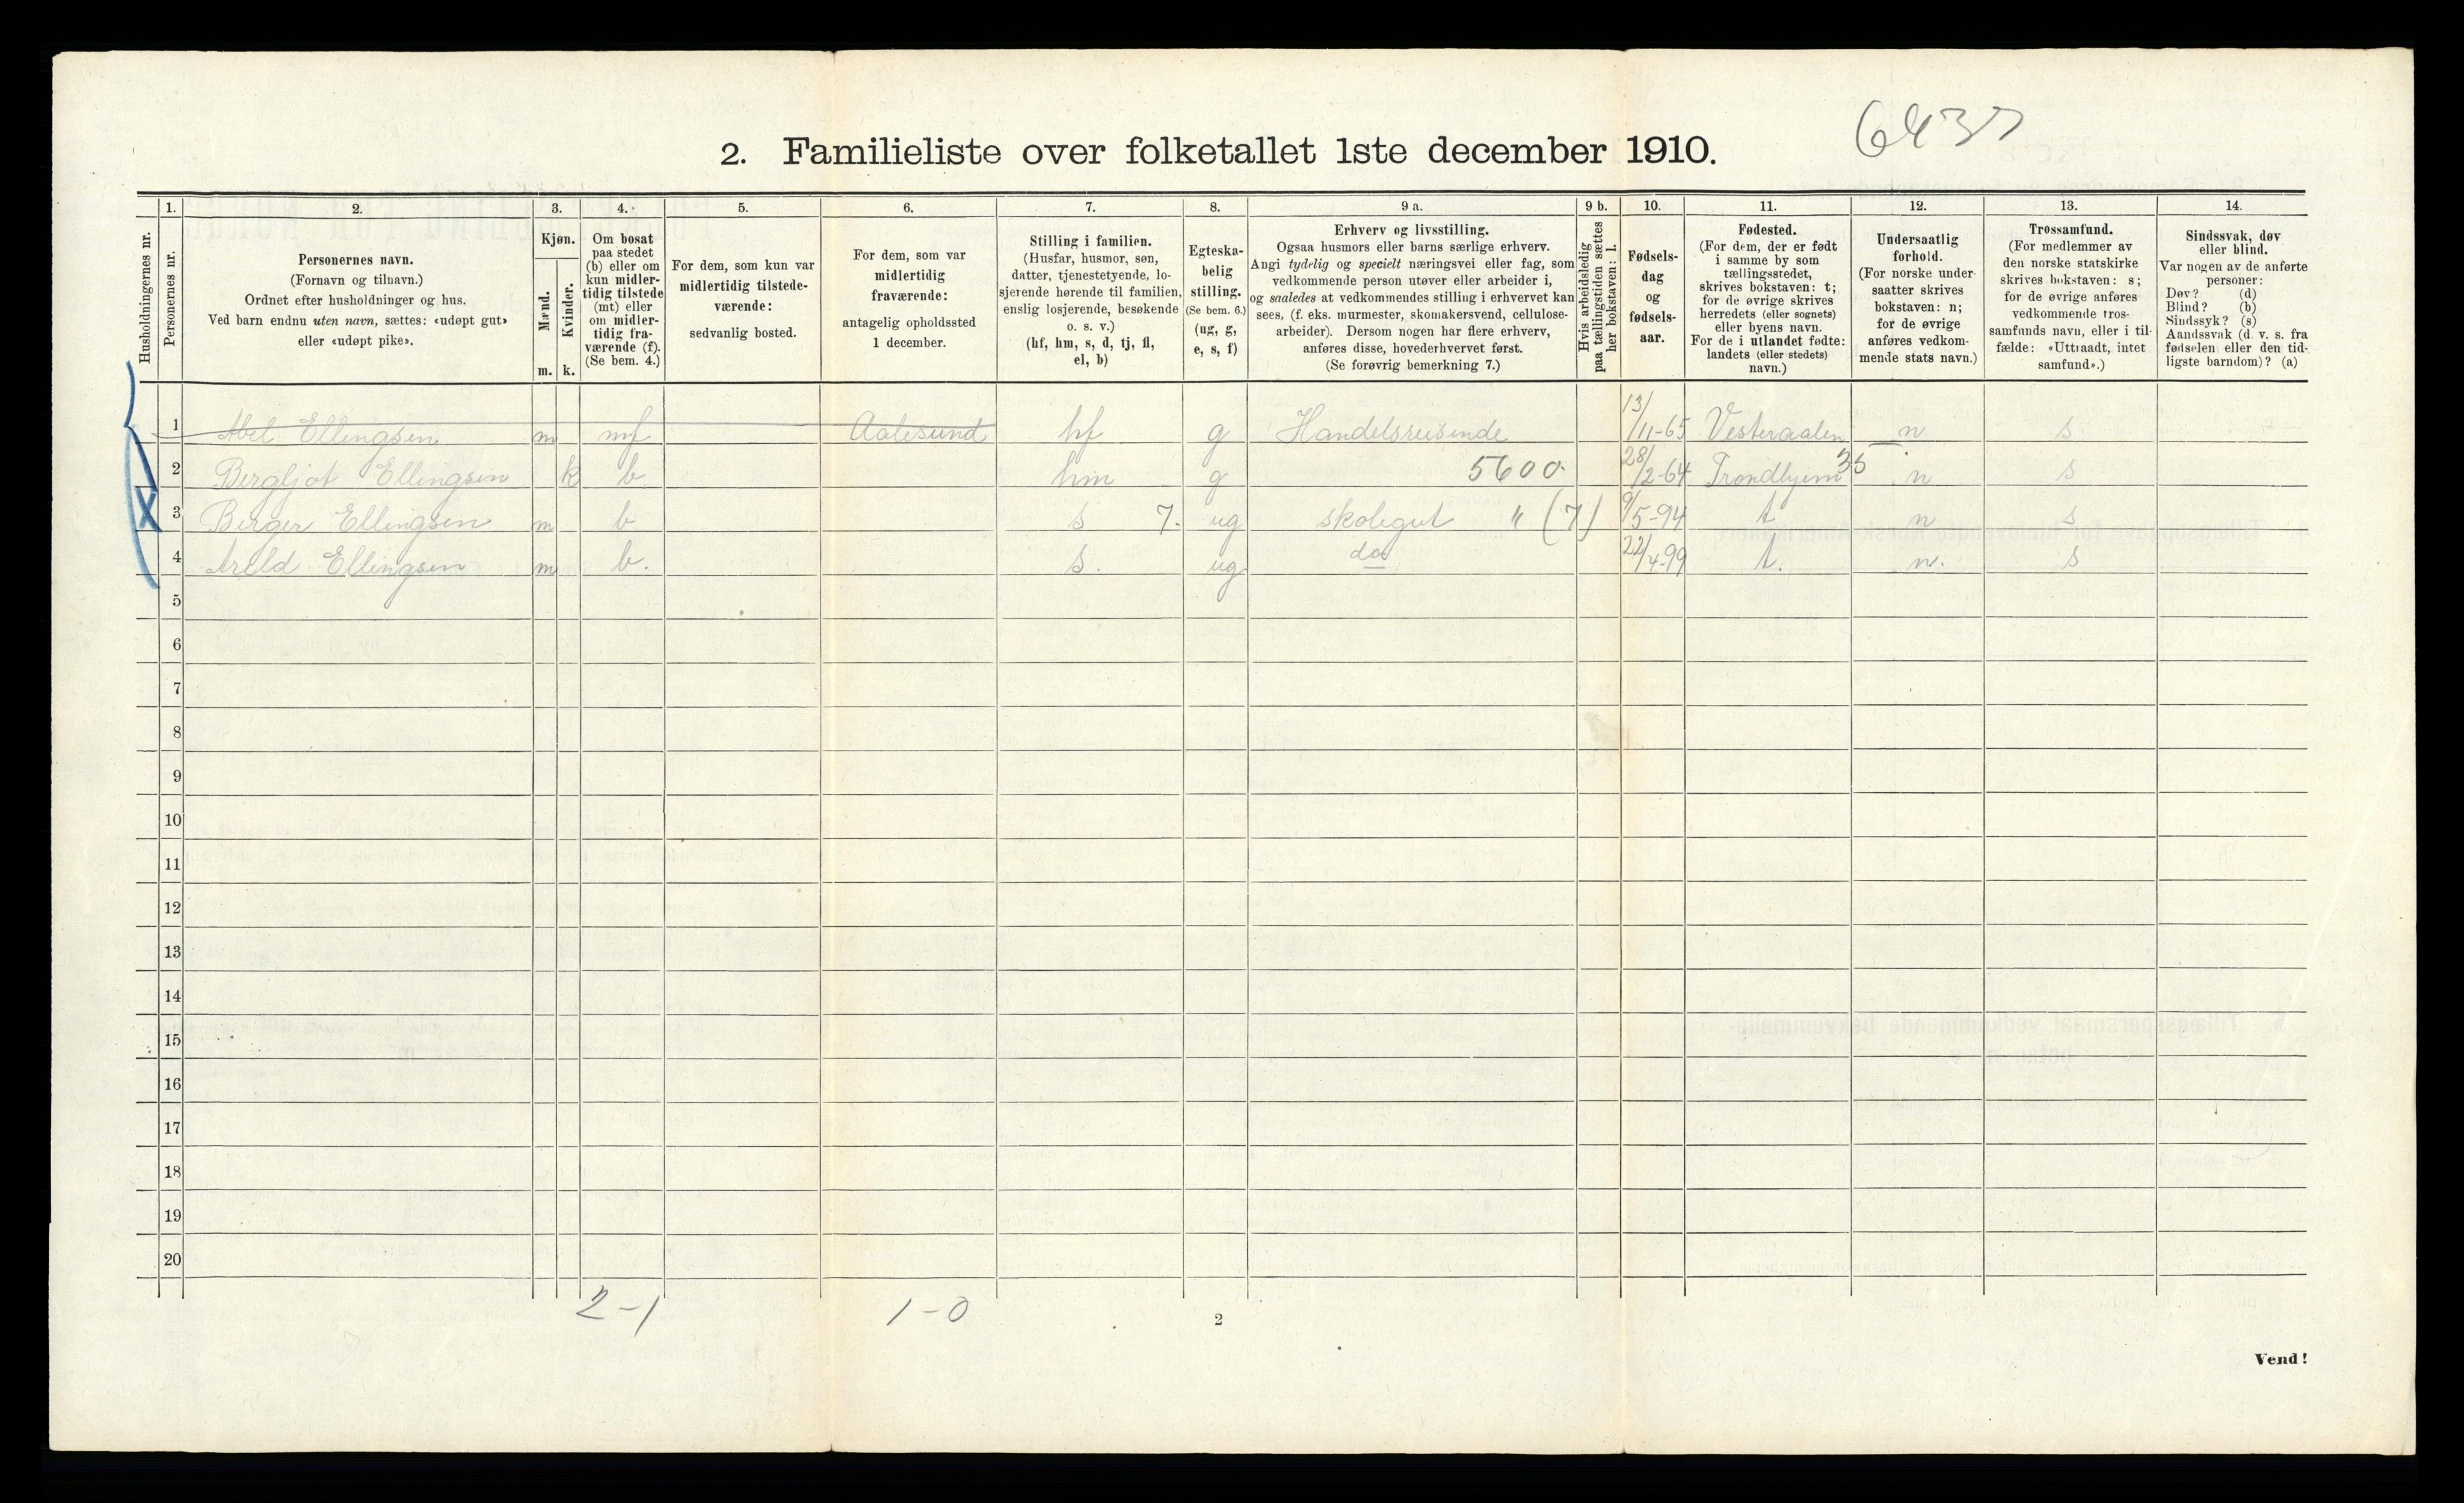 6437
2. Familieliste over folketallet 1ste december 1910.
Husholdningernes nr.
1.
Personernes nr.
2.
Personernes navn.
(Fornavn og tilnavn.)
Ordnet efter husholdninger og hus.
Ved barn endnu uten navn, sættes: «udøpt gut»
eller «udøpt pike».
3.
Kjøn.
Mænd.
m.
Kvinder.
k.
4.
Om bosat
paa stedet
(b) eller om
kun midler-
tidig tilstede
(mt) eller
om midler-
tidig fra-
værende (f).
(Se bem. 4.)
5.
For dem, som kun var
midlertidig tilstede-
værende:
sedvanlig bosted.
6.
For dem, som var
midlertidig
fraværende:
antagelig opholdssted
1 december.
7.
Stilling i familien.
(Husfar, husmor, søn,
datter, tjenestetyende, lo-
sjerende hørende til familien,
enslig losjerende, besøkende
o. s. v.)
(hf, hm, s, d, tj, fl,
el, b)
8.
Egteska-
belig
stilling.
(Se bem. 6.)
(ug, g,
e, s, f)
9 a.
Erhverv og livsstilling.
Ogsaa husmors eller barns særlige erhverv.
Angi tydelig og specielt næringsvei eller fag, som
vedkommende person utøver eller arbeider i,
og saaledes at vedkommendes stilling i erhvervet kan
sees, (f. eks. murmester, skomakersvend, cellulose-
arbeider). Dersom nogen har flere erhverv,
anføres disse, hovederhvervet først.
(Se forøvrig bemerkning 7.)
9 b.
Hvis arbeidsledig
paa tællingstiden sættes
her bokstaven: l.
10.
Fødsels-
dag
og
fødsels-
aar.
11.
Fødested.
(For dem, der er født
i samme by som
tællingsstedet,
skrives bokstaven: t;
for de øvrige skrives
herredets (eller sognets)
eller byens navn.
For de i utlandet fødte:
landets (eller stedets)
navn.)
12.
Undersaatlig
forhold.
(For norske under-
saatter skrives
bokstaven: n;
for de øvrige
anføres vedkom-
mende stats navn.)
13.
Trossamfund.
(For medlemmer av
den norske statskirke
skrives bokstaven: s;
for de øvrige anføres
vedkommende tros-
samfunds navn, eller i til-
fælde: «Uttraadt, intet
samfund».)
14.
Sindssvak, døv
eller blind.
Var nogen av de anførte
personer:
Døv? (d)
Blind? (b)
Sindssyk? (s)
Aandssvak (d. v. s. fra
fødselen eller den tid-
ligste barndom)? (a)
1 Abel Ellingsen m mf Aalesund hf g Handelsreisende 13/11-65 Vesteraalen n s
2 Bergljot Ellingsen k b hm g 5600. 28/2-64 Trondhjem 35 n s
3 Berger Ellingsen m b s 7. ug skolegut " (7) 9/5-94 t n s
4 Areld Ellingsen m b. s. ug do 22/4-99 t. n. s
5
6
7
8
9
10
11
12
13
14
15
16
17
18
19
20
2-1 1-0
2
Vend!